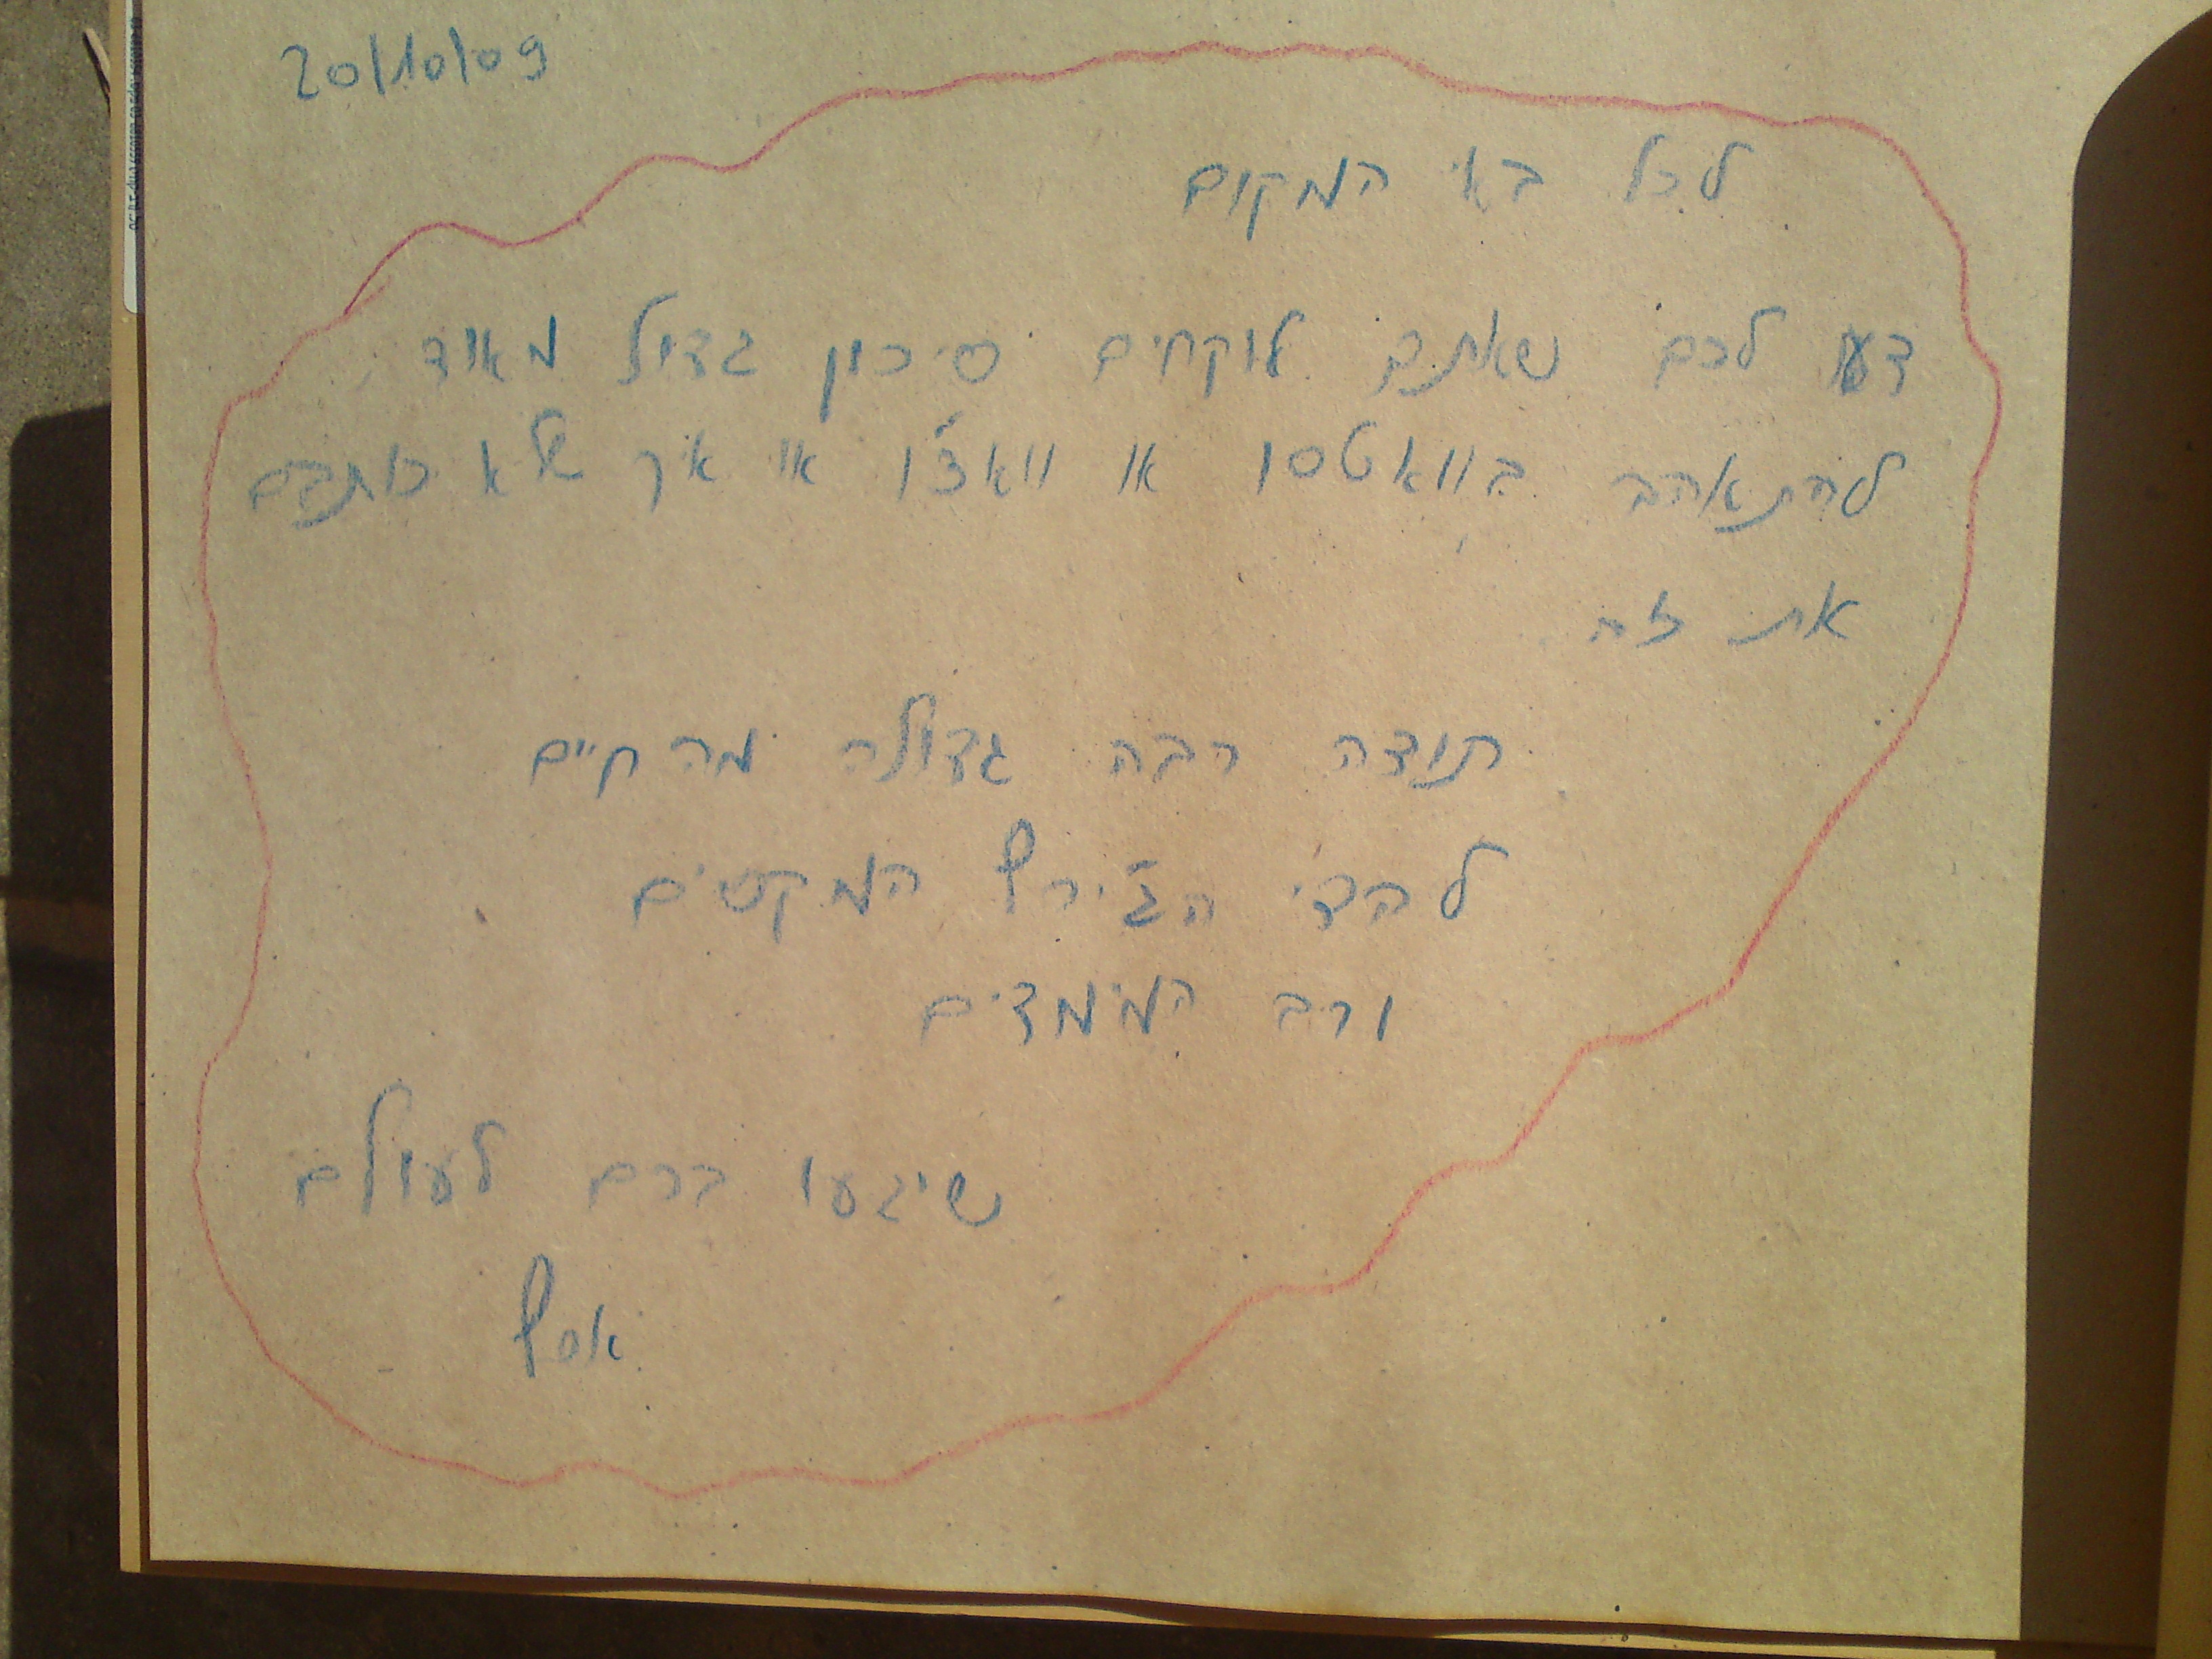 20/10/09
לכל באי המקום
דעו לכם שאתם לוקחים סיכון גדול מאוד
להתאהב בוואטסו או וואצ'ו או איך שלא כותבים
את זה
תודה רבה גדולה מהחיים
להדי הג'ירף המקסים
ורב המימדים
שיגעו ברכם לעולם
אסף